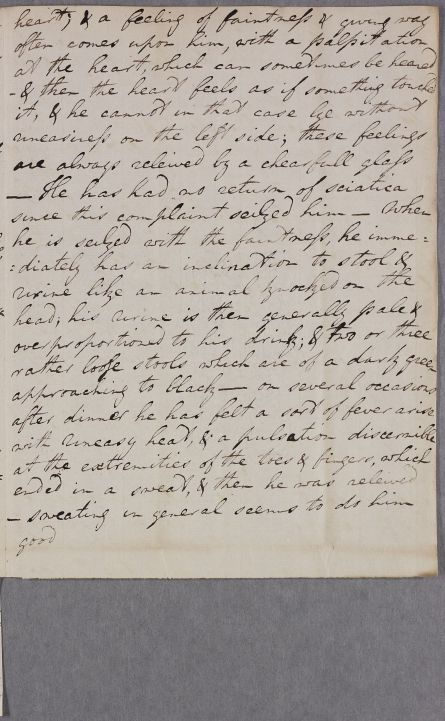 heart; & a feeling of faintness & giving way
often comes upon him, with a palpitation
at the heart, which can sometimes be heared
- & then the heart feels as if something touched
it, & he cannot in that case lye without
uneasiness on the left side; these feelings
are always releived by a chearfull glass
— He has had no return of sciatica
since this complaint seilzed him — When
he is seilzed with the faintness, he imme=
=diately has an inclination to stool &
urine like an animal knocked on the
head; his urine is then generally pale &
overproportioned to his drink; & two or three
rather loose stools which are of a dark green
approaching to black — on several occasions
after dinner he has felt a sort of fever arise
with uneasy head, & a pulsation discernible
at the extremities of the toes & fingers, which
ended in a sweat, & then he was releived
- sweating in general seems to do him
good